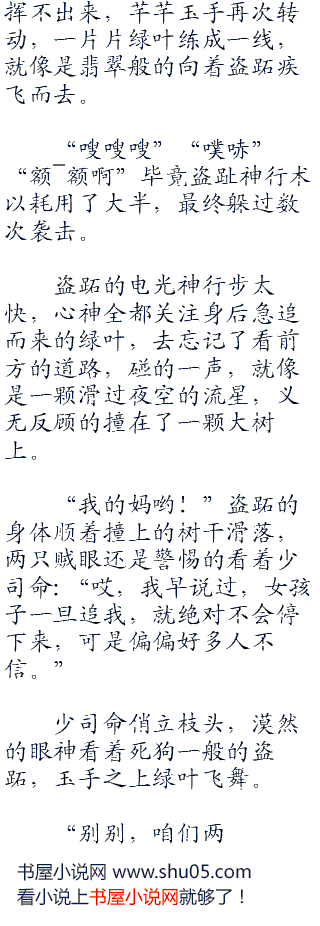 挥不出来，芊芊玉手再次转
动，一片片绿叶练成一线，
就像是翡翠般的向着盗跖疾
飞而去。
“嗖嗖嗖”“噗哧”
“额~额啊”毕竟盗趾神行术
以耗用了大半，最终躲过数
次袭击。
盗跖的电光神行步太
快，心神全都关注身后急追
而来的绿叶，去忘记了看前
方的道路，碰的一声，就像
是一颗滑过夜空的流星，义
无反顾的撞在了一颗大树
上。
“我的妈哟！”盗跖的
身体顺着撞上的树干滑落，
两只贼眼还是警惕的看着少
司命：“哎，我早说过，女孩
子一旦追我，就绝对不会停
下来，可是偏偏好多人不
信。”
少司命俏立枝头，漠然
的眼神看着死狗一般的盗
跖，玉手之上绿叶飞舞。
“别别，咱们两
书屋小说网 www.shu05.com
看小说上书屋小说网就够了！